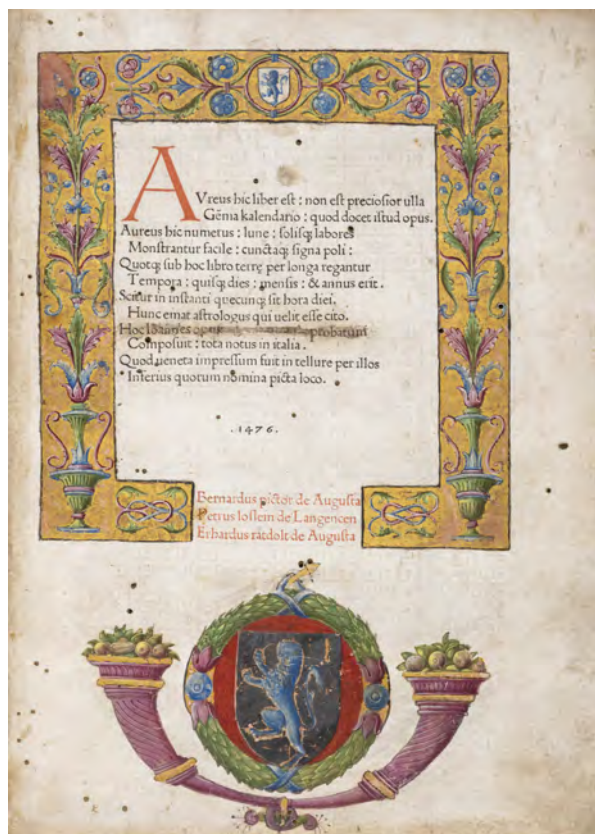 AVreus hic liber est : non est preciosior ulla
Gēma kalendario : quod docet istud opus.
Aureus hic numerus : lune : solisq; labores
Monstrantur facile : cunctaq; signa poli :
Quotq; sub hoc libro terrę per longa regantur
Tempora : quisq; dies : mensis : & annus erit.
Scitur in instanti quecunq; sit hora diei.
Hunc emat astrologus qui uelit esse cito.
Hoc Ioannes opus probatum
Composuit : tota notus in italia.
Quod ueneta impressum fuit in tellure per illos
Inferius quorum nomina picta loco.
.1476.
Bernardus pictor de Augusta
Petrus loslein de Langencen
Erhardus ratdolt de Augusta